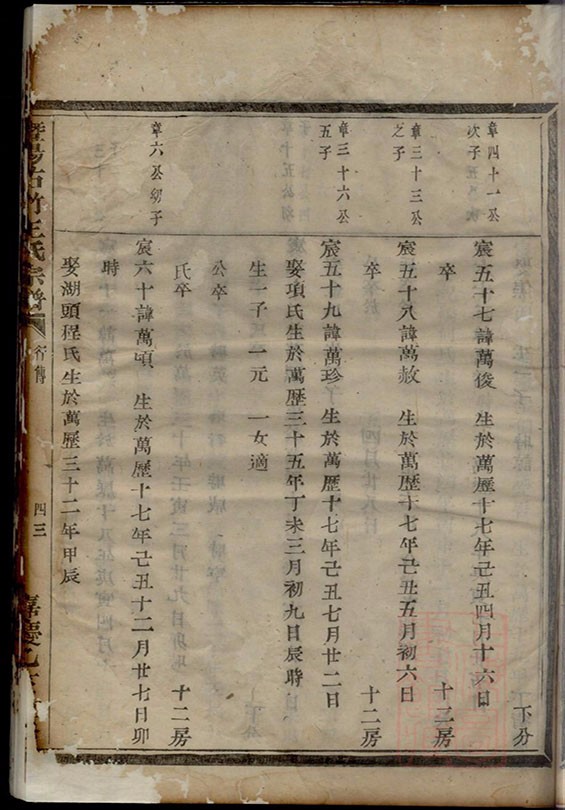 下分
章四十一公
次子
宸五十七諱萬俊 生於萬歷十七年己丑四月十六日
卒 十三房
章三十三公
之子
宸五十八諱萬赦 生於萬歷十七年己丑五月初六日
卒 十二房
章三十六公
五子
宸五十九諱萬珍 生於萬歷十七年己丑七月廿二日
娶項氏生於萬歷三十五年丁未三月初九日辰時
生一子一元 一女適
公卒
氏卒 十二房
章六公幼子
宸六十諱萬頃 生於萬歷十七年己丑十二月廿七日卯
時
娶湖頭程氏生於萬歷三十二年甲辰
暨陽古竹王氏宗譜 行傳 四三 嘉慶